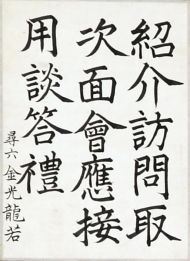 紹介訪問取
次面會應接
用談答禮
尋六 金光龍若